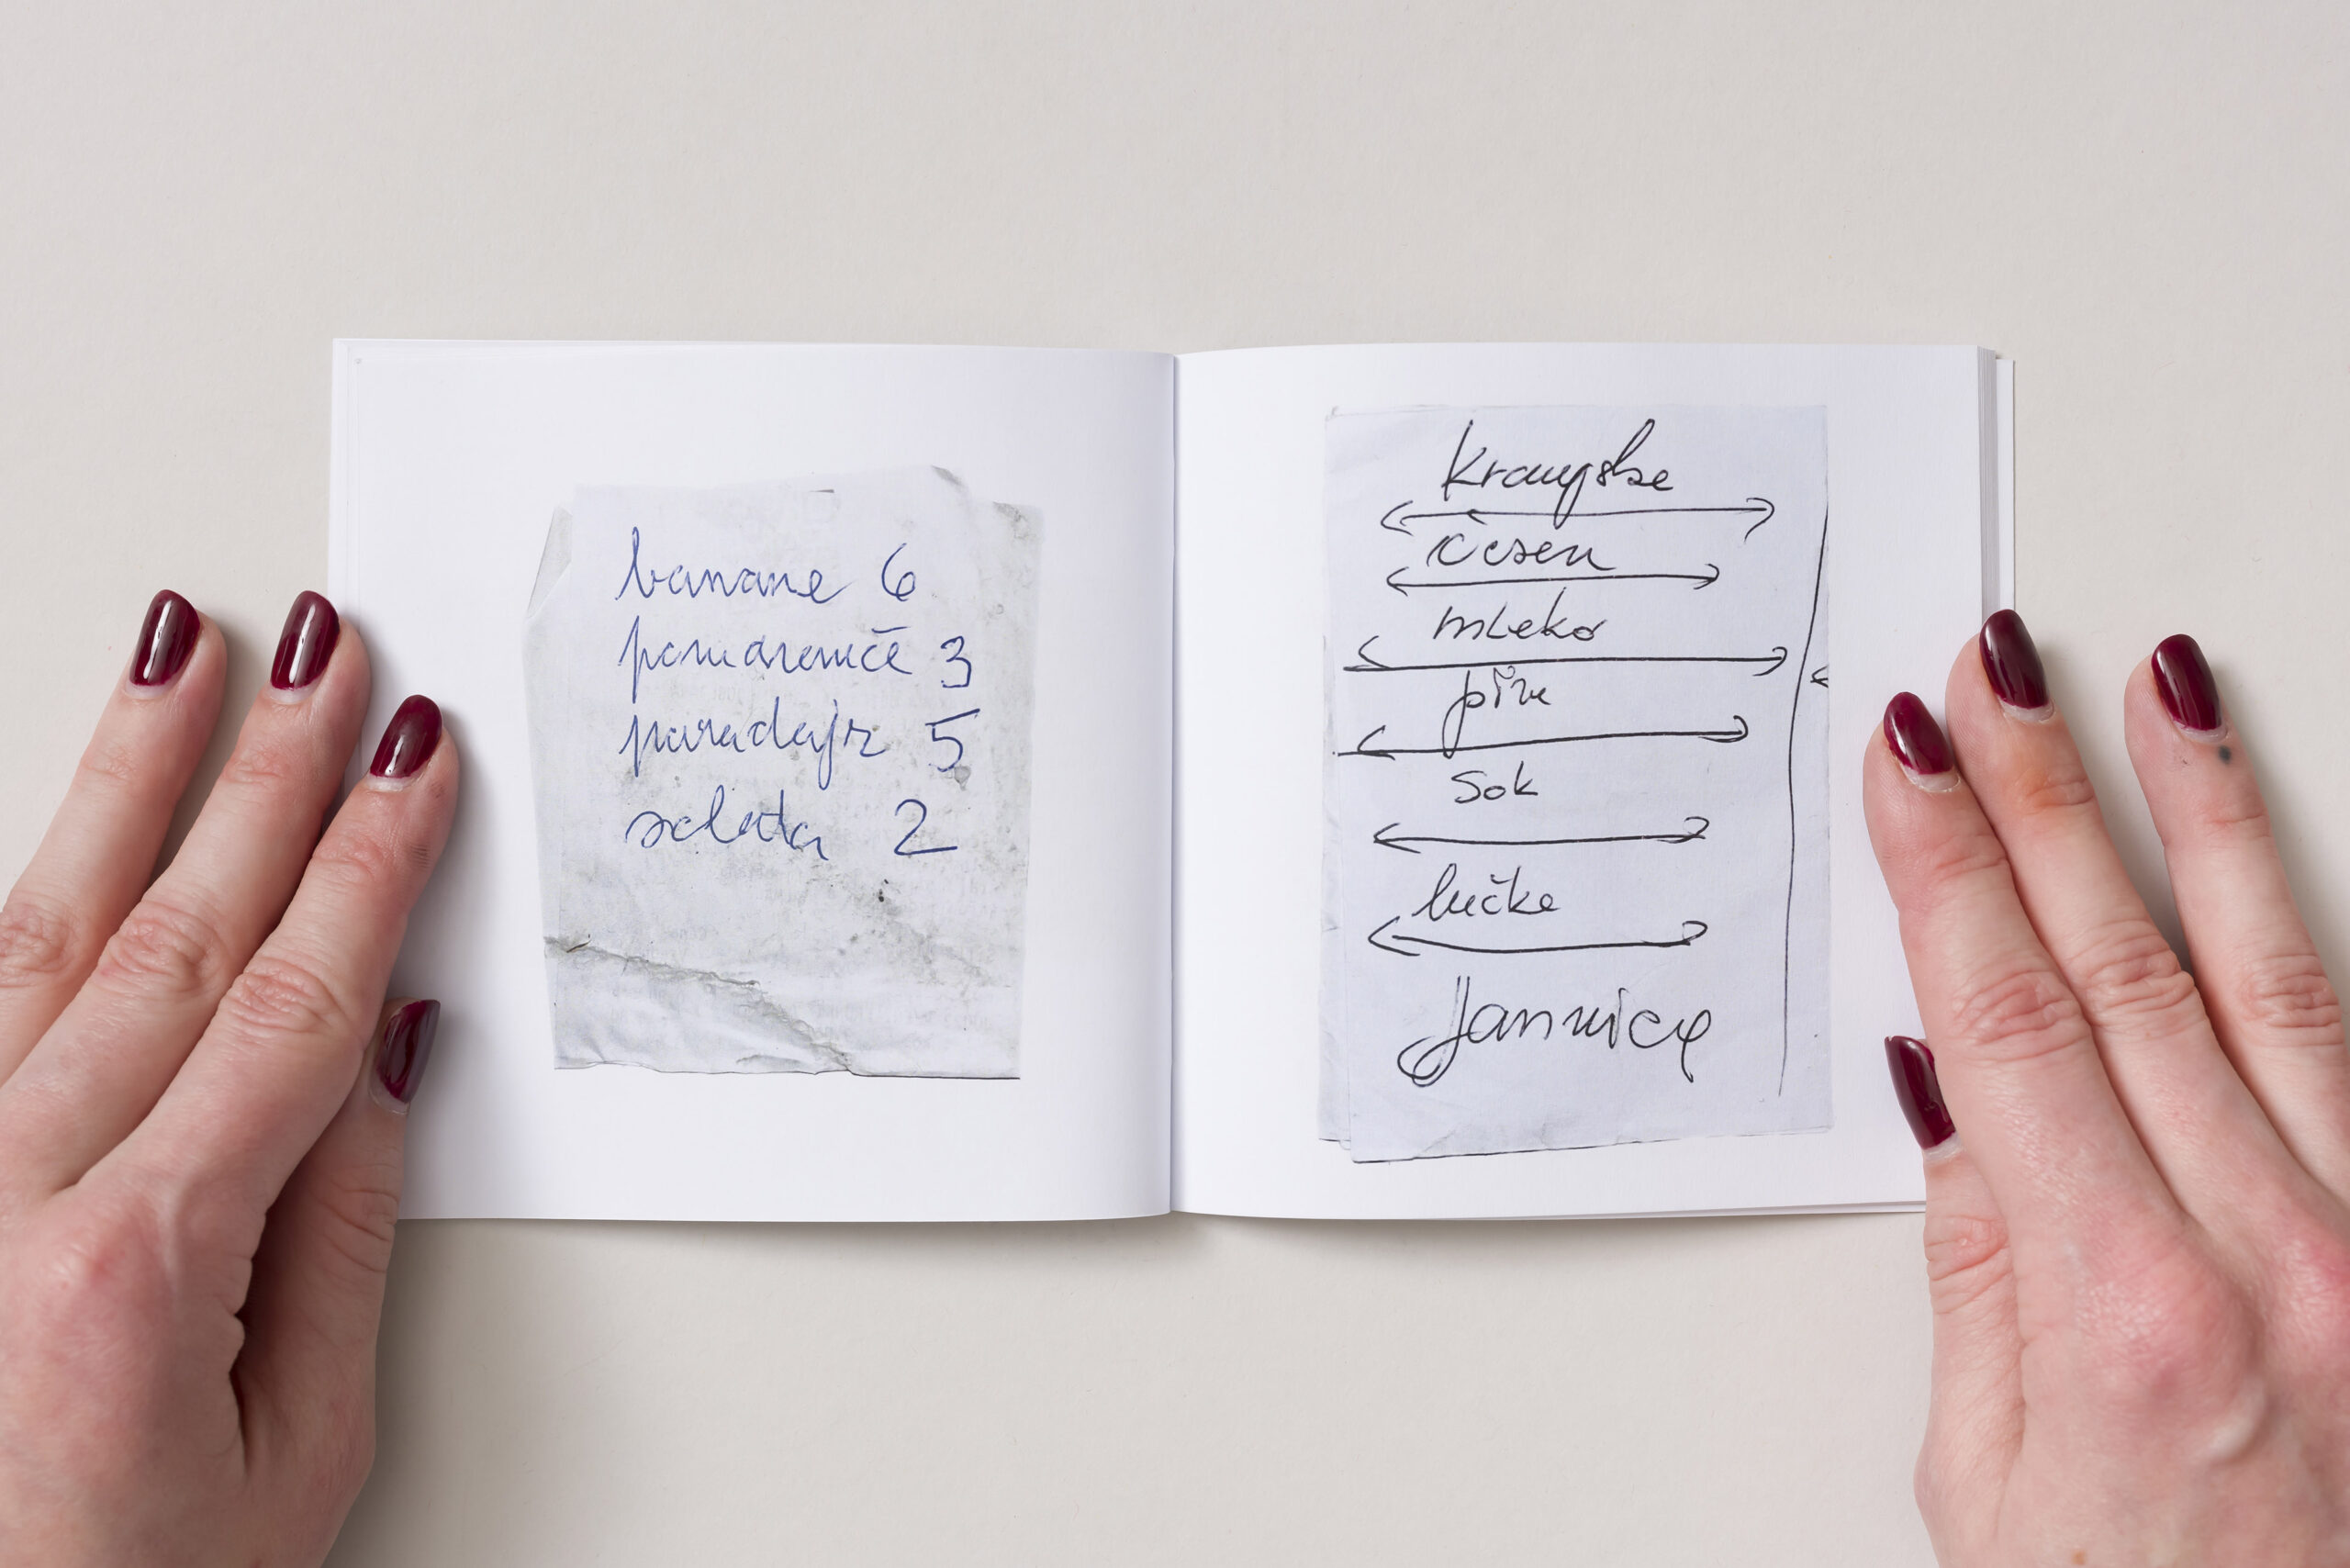 banane 6
pomaranče 3
paradajz 5
solata 2
kranjske
česen
mleko
pivo
sok
lučke